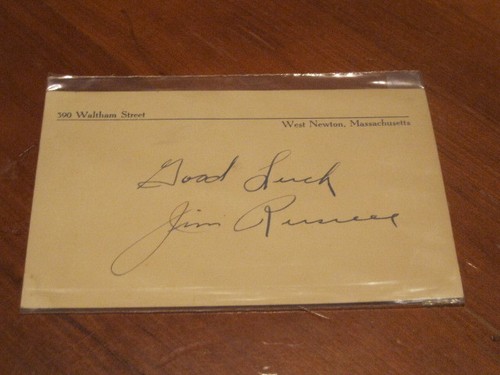 590 Waltham Street
West Newton, Massachusetts
Good Luck
Jim Russell